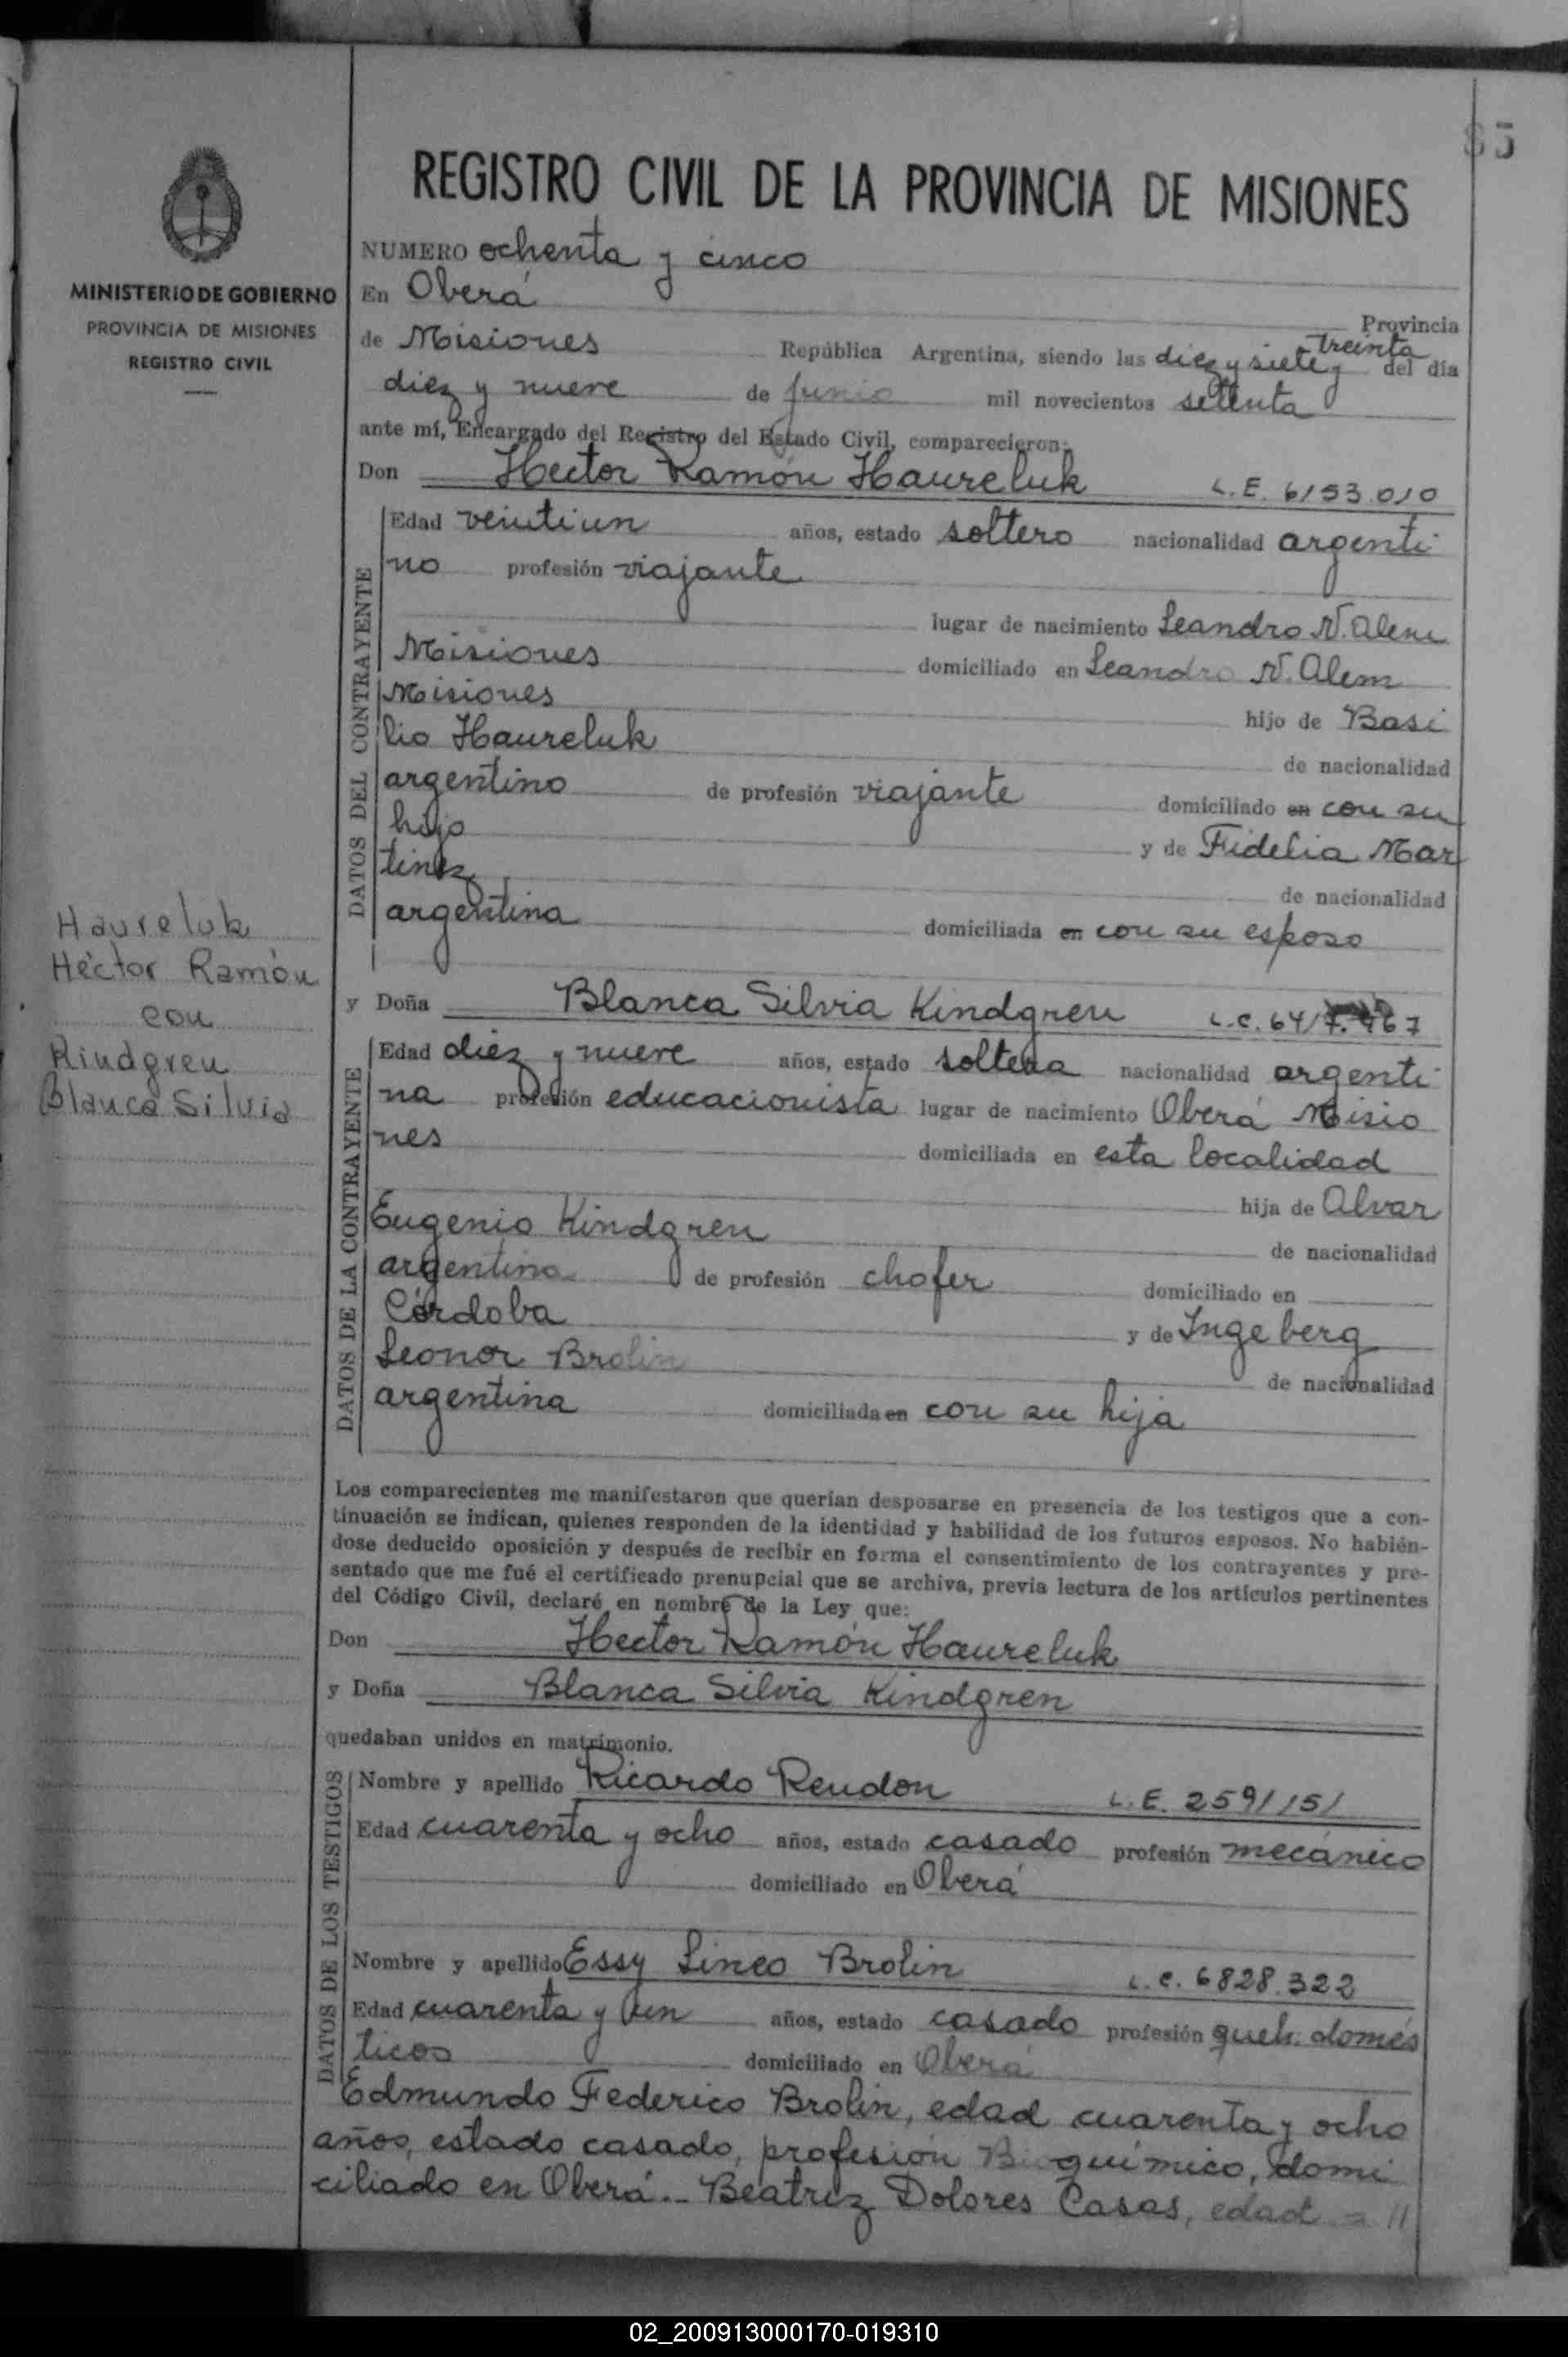 85
REGISTRO CIVIL DE LA PROVINCIA DE MISIONES
MINISTERIO DE GOBIERNO
PROVINCIA DE MISIONES
REGISTRO CIVIL
NUMERO ochenta y cinco
En Oberá Provincia
de Misiones República Argentina, siendo las diez y siete y treinta del día
diez y nueve de junio mil novecientos setenta
ante mí, Encargado del Registro del Estado Civil, comparecieron:
Don Hector Ramón Haureluk L.E. 6153.010
DATOS DEL CONTRAYENTE
Edad veintiun años, estado soltero nacionalidad argenti
no profesión viajante
lugar de nacimiento Leandro N. Alem
Misiones domiciliado en Leandro N. Alem
Misiones hijo de Basi
lio Haureluk de nacionalidad
argentino de profesión viajante domiciliado en con su
hijo y de Fidelia Mar
tinez de nacionalidad
argentina domiciliada en con su esposo
Haureluk
Héctor Ramón
con
Kindgren
Blanca Silvia
y Doña Blanca Silvia Kindgren L.C. 6417.467
DATOS DE LA CONTRAYENTE
Edad diez y nueve años, estado soltera nacionalidad argenti
na profesión educacionista lugar de nacimiento Oberá Misio
nes domiciliada en esta localidad
hija de Alvar
Eugenio Kindgren de nacionalidad
argentino de profesión chofer domiciliado en
Córdoba y de Ingeberg
Leonor Brolin de nacionalidad
argentina domiciliada en con su hija
Los comparecientes me manifestaron que querían desposarse en presencia de los testigos que a con-
tinuación se indican, quienes responden de la identidad y habilidad de los futuros esposos. No habién-
dose deducido oposición y después de recibir en forma el consentimiento de los contrayentes y pre-
sentado que me fué el certificado prenupcial que se archiva, previa lectura de los artículos pertinentes
del Código Civil, declaré en nombre de la Ley que:
Don Hector Ramón Haureluk
y Doña Blanca Silvia Kindgren
quedaban unidos en matrimonio.
DATOS DE LOS TESTIGOS
Nombre y apellido Ricardo Rendon L.E. 2591151
Edad cuarenta y ocho años, estado casado profesión mecánico
domiciliado en Oberá
Nombre y apellido Essy Lineo Brolin L.C. 6828.322
Edad cuarenta y un años, estado casado profesión queh. domés
ticos domiciliado en Oberá
Edmundo Federico Brolin, edad cuarenta y ocho
años, estado casado, profesión Bioquímico, domi
ciliado en Oberá._ Beatriz Dolores Casas, edad = //
02_200913000170-019310